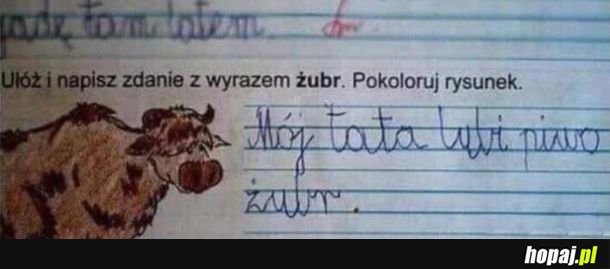 jadę tam latem.
Ułóż i napisz zdanie z wyrazem żubr. Pokoloruj rysunek.
Mój tata lubi piwo
żubr.
hopaj.pl